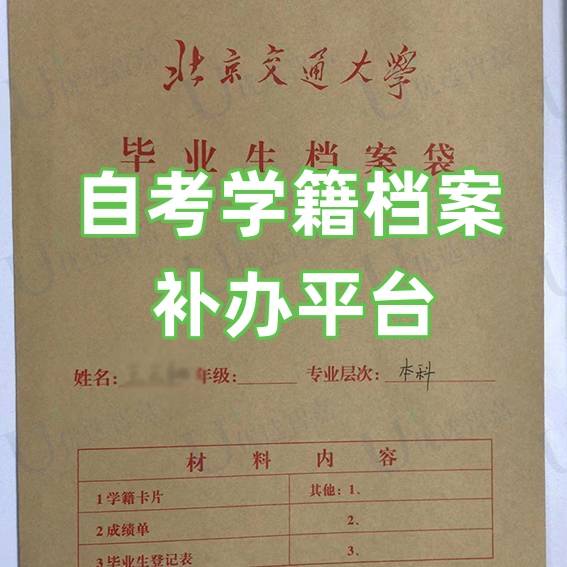 北京交通大學
毕业生档案袋
自考学籍档案
补办平台
姓名: 年级: 专业层次: 本科
材料内容
1 学籍卡片 其他: 1、
2 成绩单 2、
3 毕业生登记表 3、